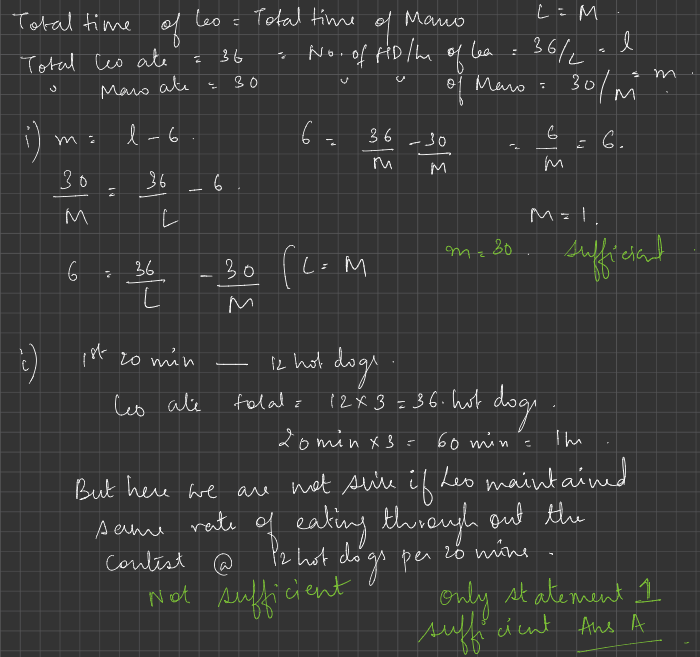 Total time of Leo = Total time of Mano L = M.
Total Leo ate = 36 = No. of HD/hr of Leo = 36/L = l
" Mano ate = 30 " " of Mano = 30/M = m.
i) m = l - 6. 6 = 36/M - 30/M = 6/M = 6.
30/M = 36/L - 6.
M = 1.
m = 30. sufficient
6 = 36/L - 30/M ( L = M
i) 1st 20 min — 12 hot dogs.
Leo ate total = 12 x 3 = 36. hot dogs.
20 min x 3 = 60 min = 1hr.
But here we are not sure if Leo maintained
same rate of eating through out the
contest @ 12 hot dogs per 20 mins.
Not sufficient
only statement 1
sufficient Ans A